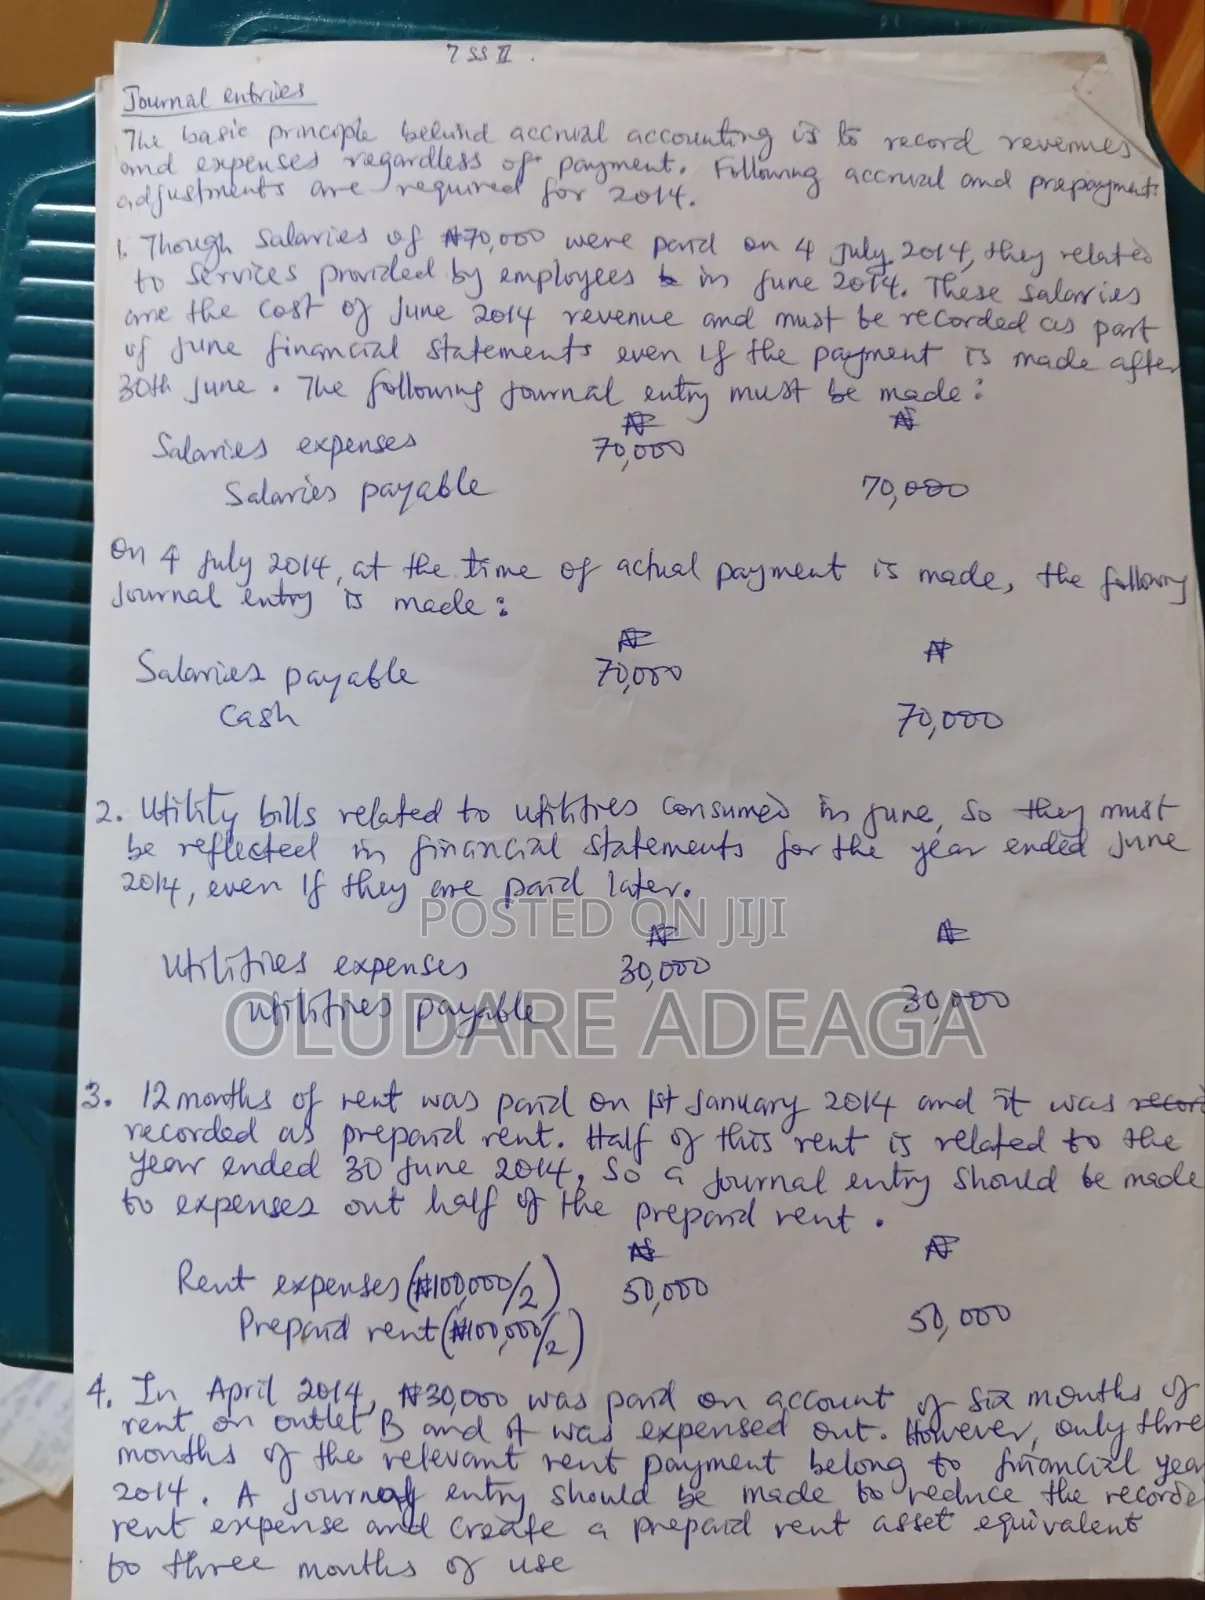 7 SS II .
Journal entries
The basic principle behind accrual accounting is to record revenues
and expenses regardless of payment. Following accrual and prepayment
adjustments are required for 2014.
1. Though Salaries of ₦70,000 were paid on 4 July 2014, they related
to services provided by employees in June 2014. These salaries
are the cost of June 2014 revenue and must be recorded as part
of June financial statements even if the payment is made after
30th June. The following journal entry must be made:
₦ ₦
Salaries expenses 70,000
Salaries payable 70,000
On 4 July 2014, at the time of actual payment is made, the following
journal entry is made:
₦ ₦
Salaries payable 70,000
Cash 70,000
2. Utility bills related to utilities consumed in June, so they must
be reflected in financial statements for the year ended June
2014, even if they are paid later.
POSTED ON JIJI
₦ ₦
Utilities expenses 30,000
Utilities payable 30,000
OLUDARE ADEAGA
3. 12 months of rent was paid on 1st January 2014 and it was recor
recorded as prepaid rent. Half of this rent is related to the
year ended 30 June 2014, so a journal entry should be made
to expenses out half of the prepaid rent.
₦ ₦
Rent expenses (₦100,000/2) 50,000
Prepaid rent (₦100,000/2) 50,000
4. In April 2014, ₦30,000 was paid on account of six months of
rent on outlet B and it was expensed out. However, only three
months of the relevant rent payment belong to financial year
2014. A journal entry should be made to reduce the recorde
rent expense and create a prepaid rent asset equivalent
to three months of use